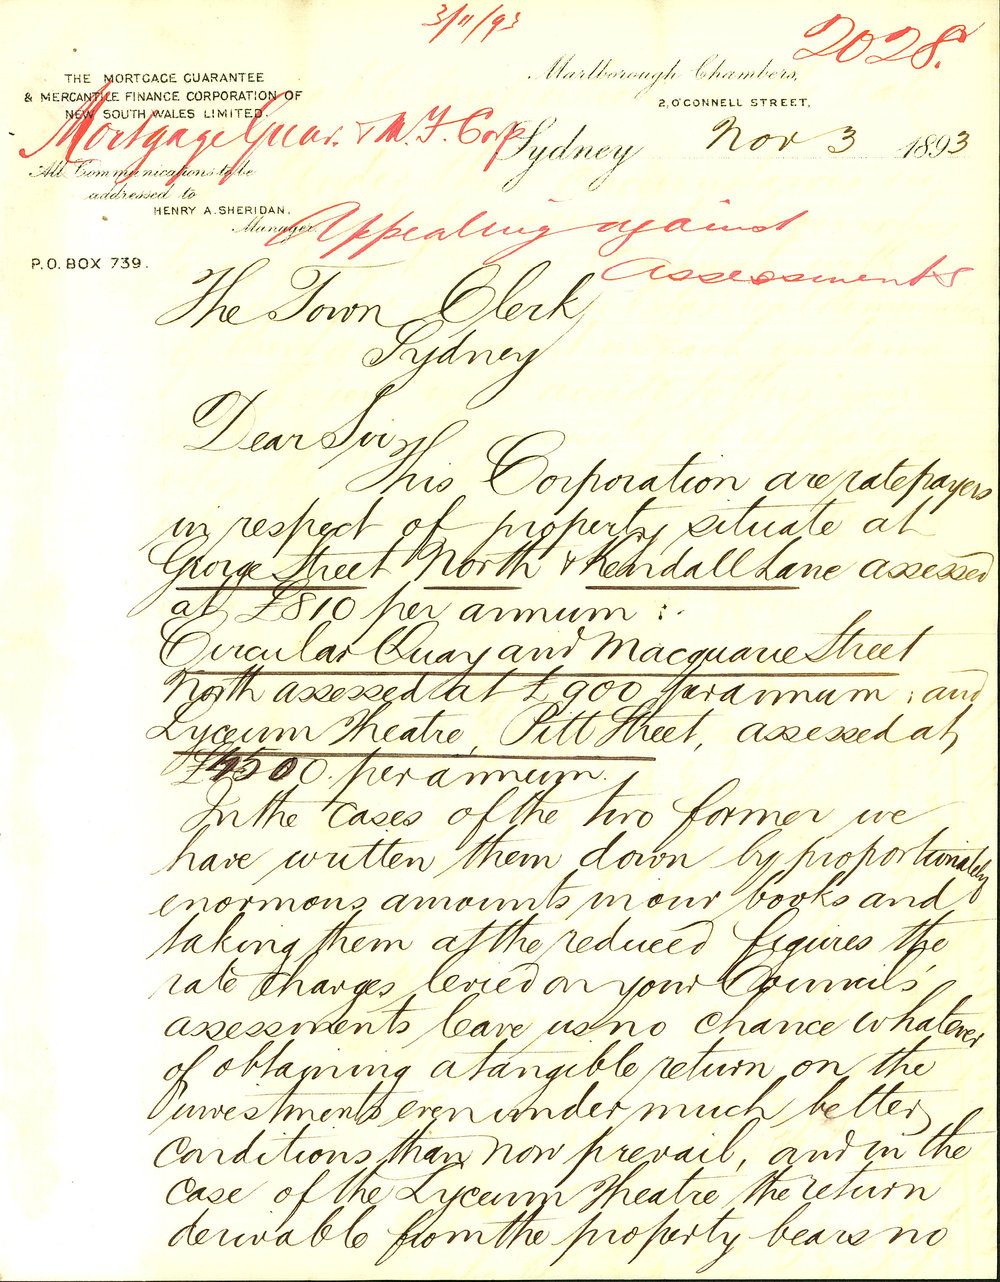 3/11/93
2028.
THE MORTGAGE GUARANTEE
& MERCANTILE FINANCE CORPORATION OF
NEW SOUTH WALES LIMITED.
Mortgage Guar. & M. F. Corp
All Communications to be
addressed to
HENRY A. SHERIDAN.
Manager.
P.O. BOX 739.
Marlborough Chambers,
2, O'CONNELL STREET,
Sydney Nov 3 1893
Appealing against
assessments
The Town Clerk
Sydney
Dear Sir
This Corporation are ratepayers
in respect of property situate at
George Street North & Kendall Lane assessed
at £810 per annum :-
Circular Quay and Macquarie Street
North assessed at £900 per annum ; and
Lyceum Theatre, Pitt Street, assessed at
£4500. per annum.
In the cases of the two former we
have written them down by proportionately
enormous amounts in our books and
taking them at the reduced figures the
rate charges levied on your Council's
assessments leave us no chance whatever
of obtaining a tangible return on the
investments even under much better
conditions than now prevail, and in the
case of the Lyceum Theatre the return
derivable from the property bears no